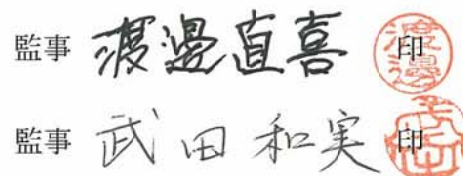 監事 渡邊直喜 印 渡邊
監事 武田和実 印